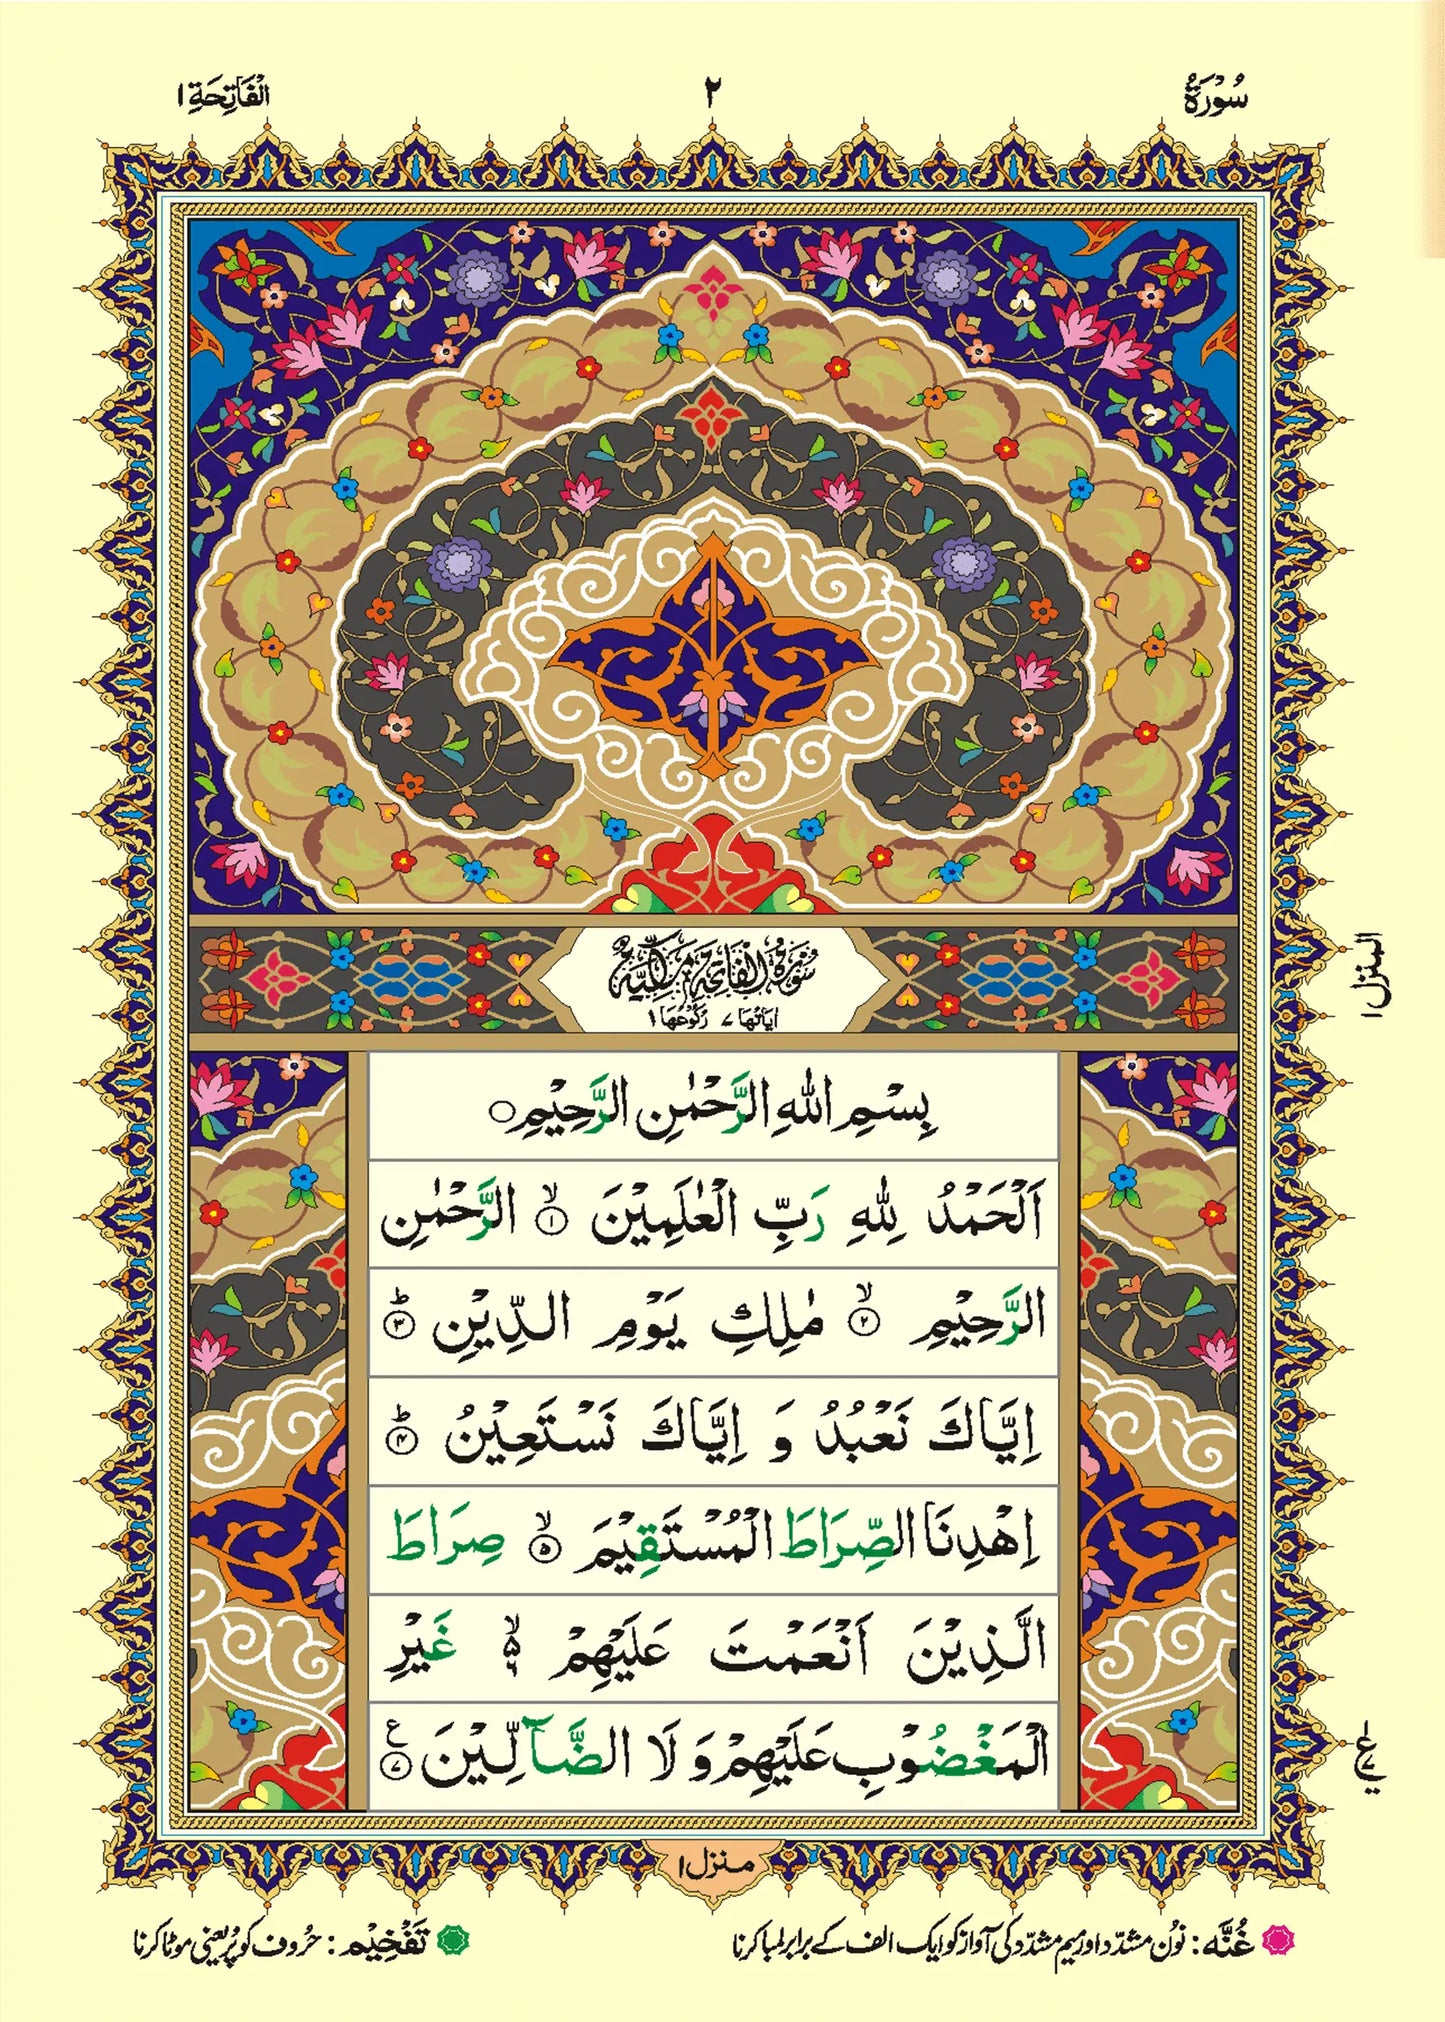 سُوْرَةُ ٢ الْفَاتِحَةِ ١
سُوْرَةُ الْفَاتِحَةِ مَكِّيَّةٌ
اٰیَاتُهَا ٧ رُكُوْعُهَا ١
بِسْمِ اللّٰهِ الرَّحْمٰنِ الرَّحِیْمِ○
اَلْحَمْدُ لِلّٰهِ رَبِّ الْعٰلَمِیْنَ ۙ﴿۱﴾ الرَّحْمٰنِ
الرَّحِیْمِ ۙ﴿۲﴾ مٰلِكِ یَوْمِ الدِّیْنِ ؕ﴿۳﴾
اِیَّاكَ نَعْبُدُ وَ اِیَّاكَ نَسْتَعِیْنُ ؕ﴿۴﴾
اِهْدِنَا الصِّرَاطَ الْمُسْتَقِیْمَ ۙ﴿۵﴾ صِرَاطَ
الَّذِیْنَ اَنْعَمْتَ عَلَیْهِمْ ۙ۬ۦ۶ غَیْرِ
الْمَغْضُوْبِ عَلَیْهِمْ وَ لَا الضَّآلِّیْنَ ﴿۷﴾ع
المنزل ١
ع
منزل ١
غُنَّه: نوُن مشدّد اور میم مشدّد کی آواز کو ایک الف کے برابر لمبا کرنا
تَفْخِیْم: حُروف کو پُر یعنی موٹا کرنا